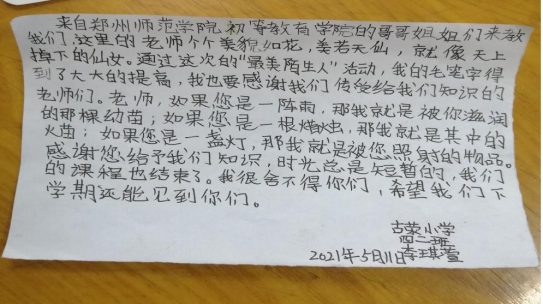 来自郑州师范学院初等教育学院的哥哥姐姐们来教
我们，这里的老师个个美貌如花，美若天仙，就像天上
掉下的仙女。通过这次的“最美陌生人”活动，我的毛笔字得
到了大大的提高，我也要感谢我们传受给我们知识的
老师们。老师，如果您是一阵雨，那我就是被你滋润
的那棵幼苗；如果您是一根火，那我就是其中的
火苗；如果您是一盏灯，那我就是被您照射的物品。
感谢您给予我们知识，时光总是短暂的，我们
的课程也结束了。我很舍不得你们，希望我们下
学期还能见到你们。
古荥小学
四二班
2021年5月11日 李琪萱